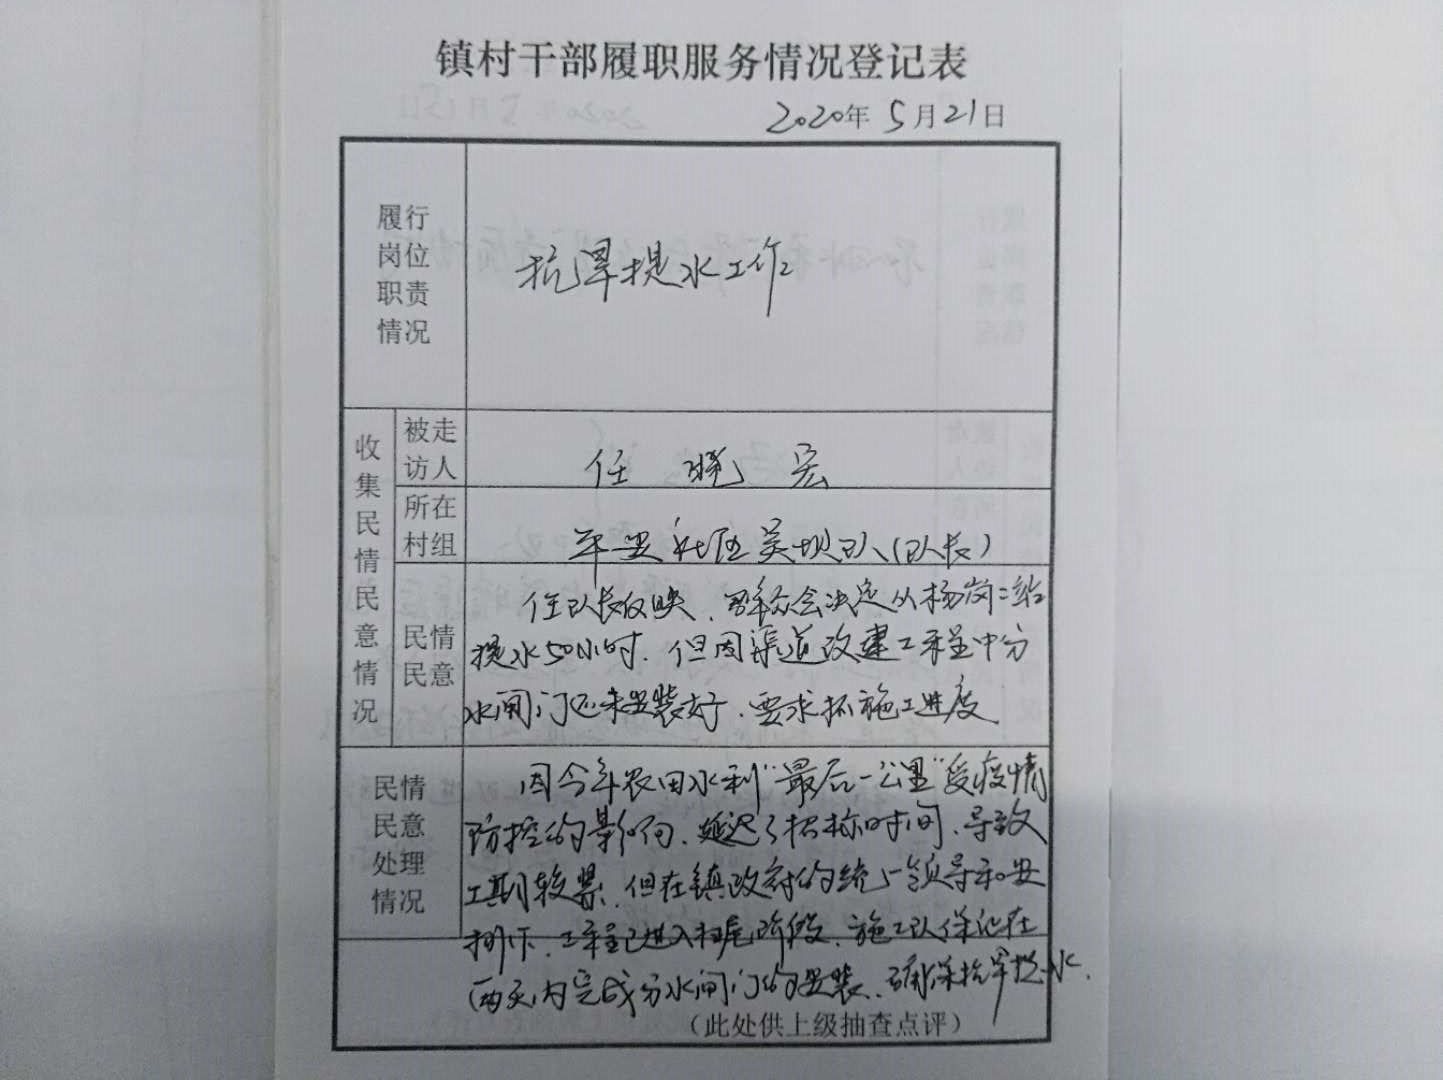 镇村干部履职服务情况登记表
2020年5月21日
履行
岗位
职责
情况
抗旱提水工作
收集民情民意情况
被走
访人
任晓宏
所在
村组
平安社区吴坝队(队长)
民情
民意
任队长反映、群众会决定从杨岗二站
提水50小时.但因渠道改建工程中分
水闸门还未安装好、要求抓施工进度
民情
民意
处理
情况
因今年农田水利"最后一公里"受疫情
防控的影响、延迟了招标时间、导致
工期较紧、但在镇政府的统一领导和安
排下、工程已进入扫尾阶段、施工队保证在
两天内完成分水闸门的安装、确保抗旱提水.
(此处供上级抽查点评)